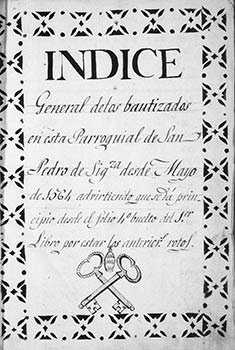 INDICE
General delos bautizados
en esta Parroquial de San
Pedro de Sig.za desde Mayo
de 1564 advirtiendo que se dá prin-
cipio desde el folio 4º buelto del 1.er
Libro por estar los anterior.s rotos.